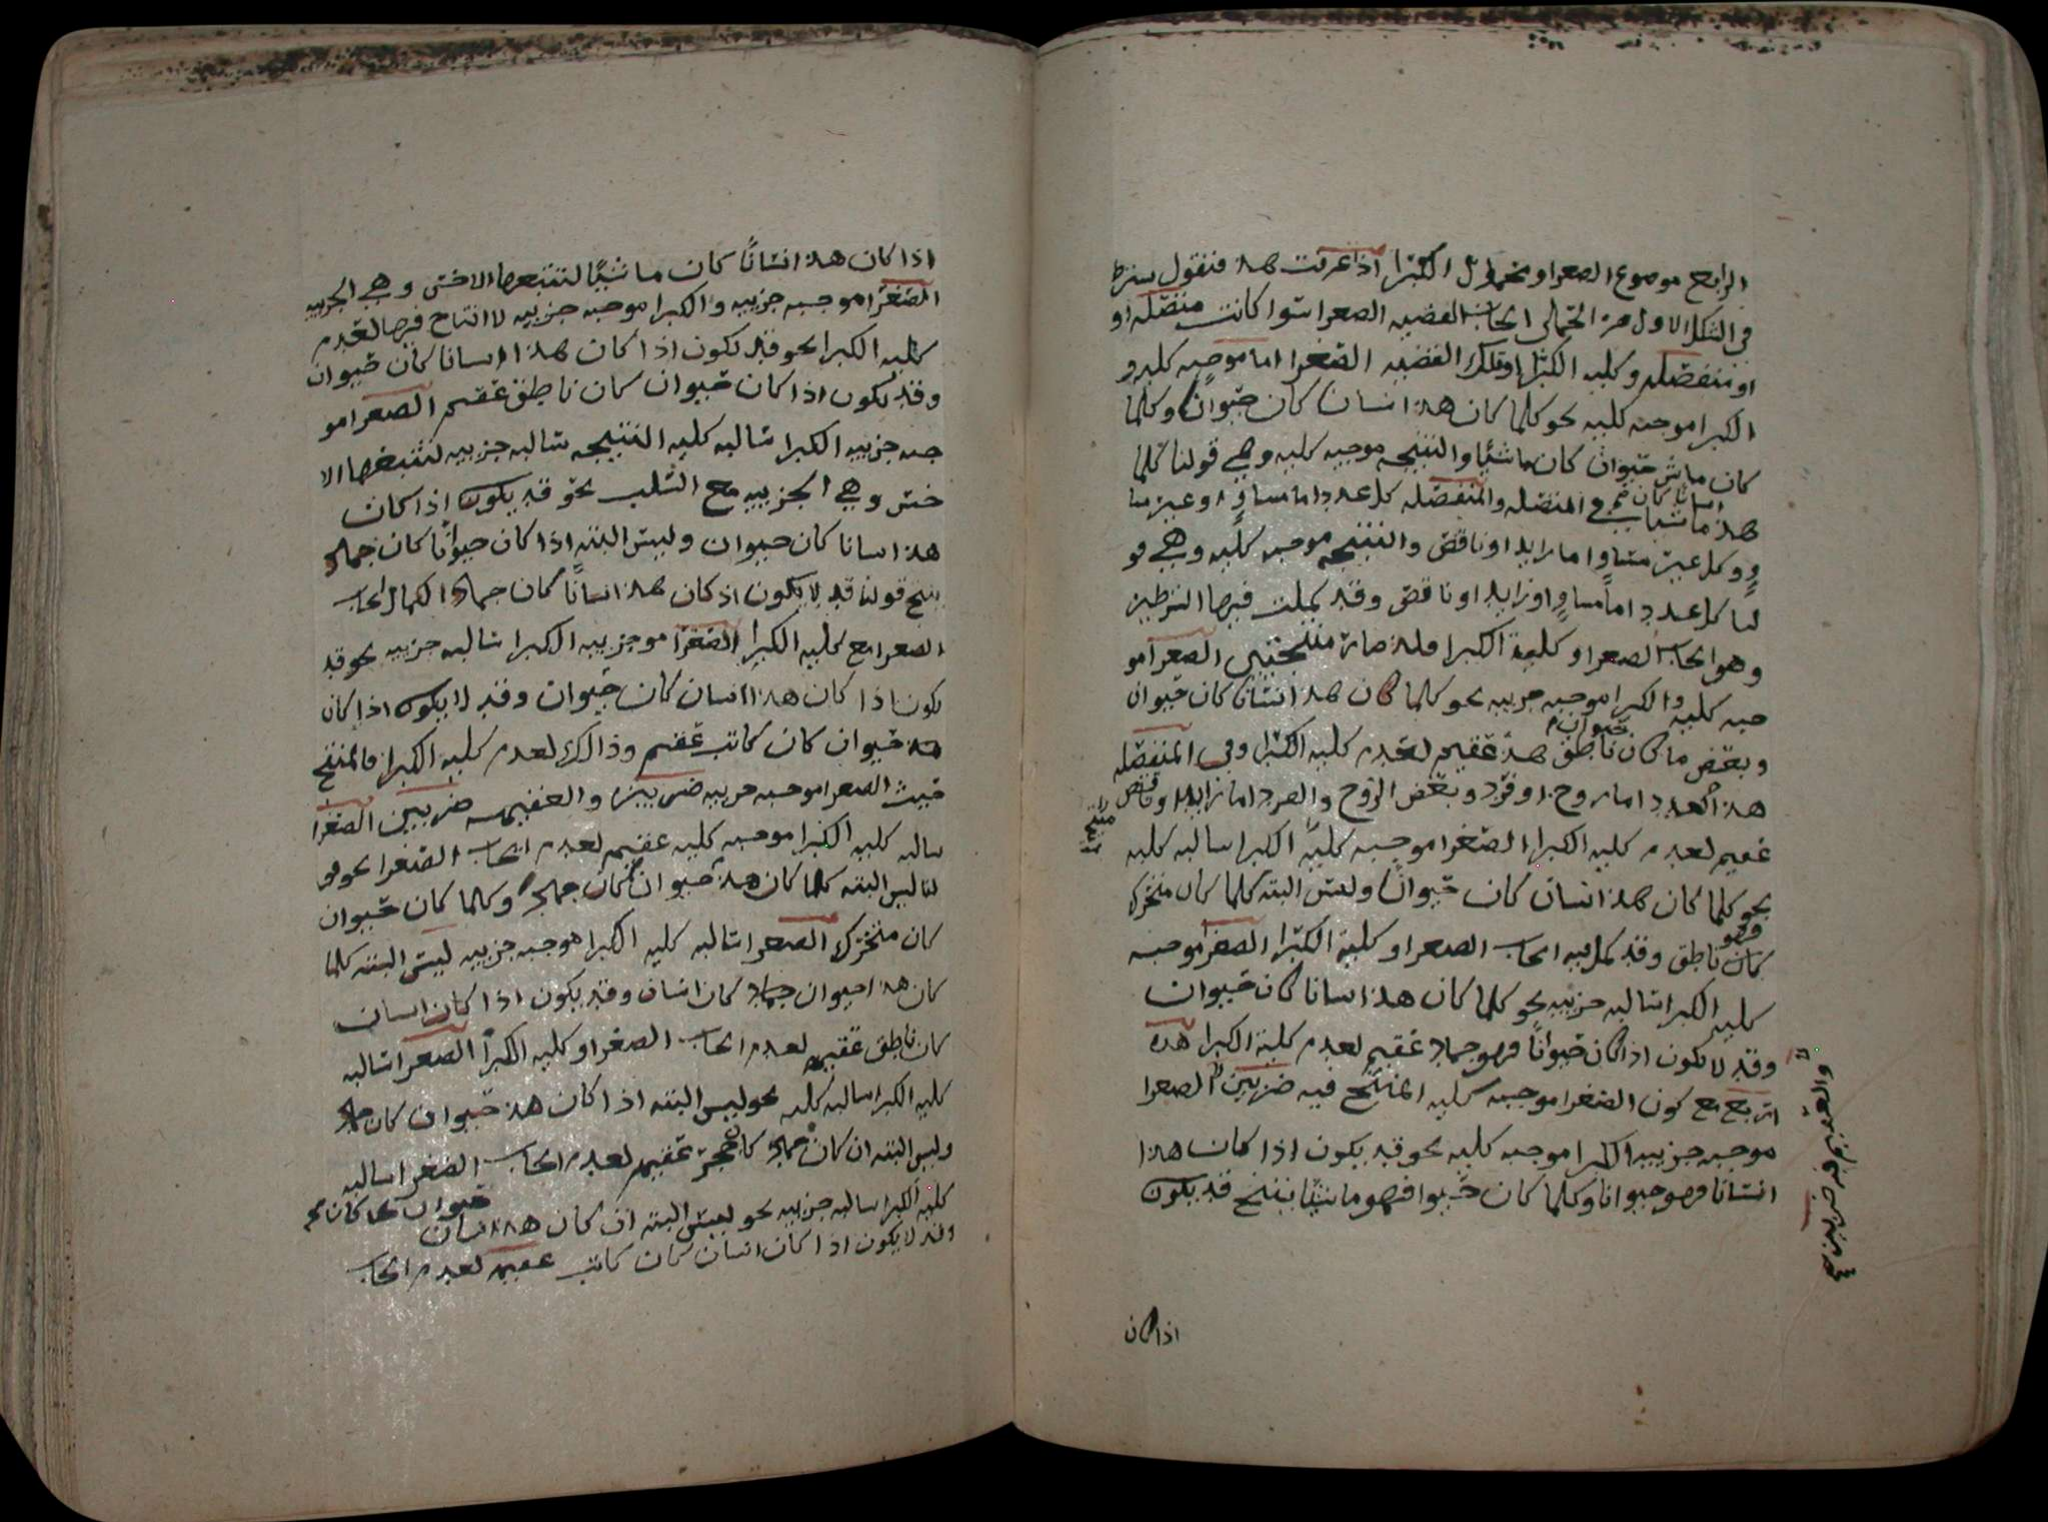 الرابع موضوع الصعرا ومحمول الكبرا اذا عرفت هذا فنقول يشترط
في الشكل الاول من الحملي ايجاب القضيه الصعرا سوا كانت متصله او
او منفصله وكليه الكبرا وتلك القضيه الصغرا اما موجبه كليه و
الكبرا موجبه كليه نحو كلما كان هذا انسان كان حيوانا وكلما
كان حيوان كان ماشيا والنتيجه موجبه كليه وهي قولنا كلما
كان هذا انسانا كان ماشيا في المتصله والمنفصله كل عدد اما مساوٍ او غير مسا
وٍ وكل غير مساوٍ اما زايد او ناقص والنتيجه موجبه كليه وهي قو
لنا كل عدد اما مساوٍ او زايد او ناقص وقد كملت فيها الشرطين
وهو ايجاب الصعرا وكلية الكبرا فلذا صارة منتجتين الصعرا مو
جبه كليه والكبرا موجبه جزييه نحو كلما كان هذا انسانا كان حيوان
وبعض ما كان حيوان ناطق هذا عقيم لعدم كليه الكبرا وفي المنفصله
هذا العدد اما زوج او فرد وبعض الزوج والفرد اما زايد او ناقص
منتج
عقيم لعدم كليه الكبرا الصغرا موجبه كليةً الكبرا سالبه كليه
نحو كلما كان هذا انسان كان حيوانا وليس البته كلما كان متحرك
كان فهو ناطق وقد كمل فيه ايجاب الصعرا وكلية الكبرا الصغرا موجبه
كليه الكبرا سالبه جزييه نحو كلما كان هذا انسانا كان حيوان
وقد لا يكون اذا كان حيواناً فهو جماد عقيم لعدم كلية الكبرا هذه
اربع مع كون الصغرا موجبه كليه المنتج فيه ضربين الصعرا
والعقيم فيه ضربين
موجبه جزييه الكبرا موجبه كليه نحو قد يكون اذا كان هذا
انسانا فهو حيوانا وكلما كان حيوانا فهو ماشيا ينتج قد يكون
اذا كان
اذا كان هذا انسانًا كان ماشيًا لتتبعها الاخس وهي الجزييه
الصغرا موجبه جزييه والكبرا موجبه جزييه لا انتاج فيها لعدم
كليه الكبرا نحو قد يكون اذا كان هذا انسانا كان حيوان
وقد يكون اذا كان حيوان كان ناطق عقيم الصعرا مو
جبه جزييه الكبرا سالبه كليه النتيجه سالبه جزييه لتتبعها الا
خس وهي الجزييه مع السلب نحو قد يكون اذا كان
هذا انسانا كان حيوان وليس البته اذا كان حيوانًا كان جماد
ينتج قولنا قد لا يكون اذ كان هذا انسانًا كان جماد الكمال ايجاب
الصعرا مع كليه الكبرا الصغرا موجزييه الكبرا سالبه جزييه نحو قد
يكون اذا كان هذا انسان كان حيوان وقد لا يكون اذا كان
هذا حيوان كان كاتب عقيم وذالك لعدم كليه الكبرا فالمنتج
حيث الصعرا موجبه جزييه ضربين والعقيمه ضربين الصغرا
سالبه كليه الكبرا موجبه كليه عقيم لعدم ايجاب الصغرا نحو قو
لنا ليس البته كلما كان هذا حيوان كان جماد وكلما كان حيوان
كان متحرك الصعرا سالبه كليه الكبرا موجبه جزييه ليس البته كلما
كان هذا حيوان جماد كان انسان وقد يكون اذا كان انسان
كان ناطق عقيم لعدم ايجاب الصغرا وكليه الكبرا الصعرا سالبه
كليه الكبرا سالبه كليه نحو ليس البته اذا كان هذا حيوان كان جماد
وليس البته ان كان جماد كان حجر عقيم لعدم ايجاب الصغرا سالبه
كليه الكبرا سالبه جزييه نحو ليس البته ان كان هذا انسان كان حيوان
وقد لا يكون اذا كان انسان كان كاتب عقيم لعدم ايجاب